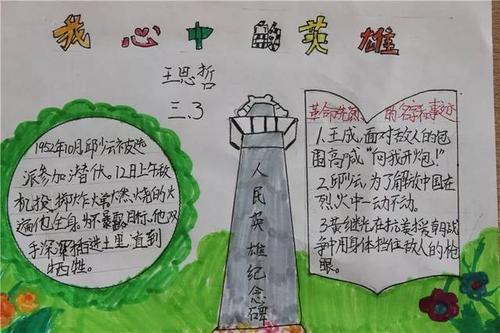 我心中的英雄
王思哲
三.3
1952年10月邱少云被选
派参加潜伏。12日上午敌
机投掷炸弹燃烧的火
焰他全身。为不暴露目标,他双
手深深插进土里直到
牺牲。
人民英雄纪念碑
革命先烈的名字和事迹
1.王成,面对敌人的包
围高喊“向我开炮!”
2.邱少云,为了解放中国在
烈火中一动不动。
3.黄继光在抗美援朝战
争中用身体挡住敌人的炮
眼。